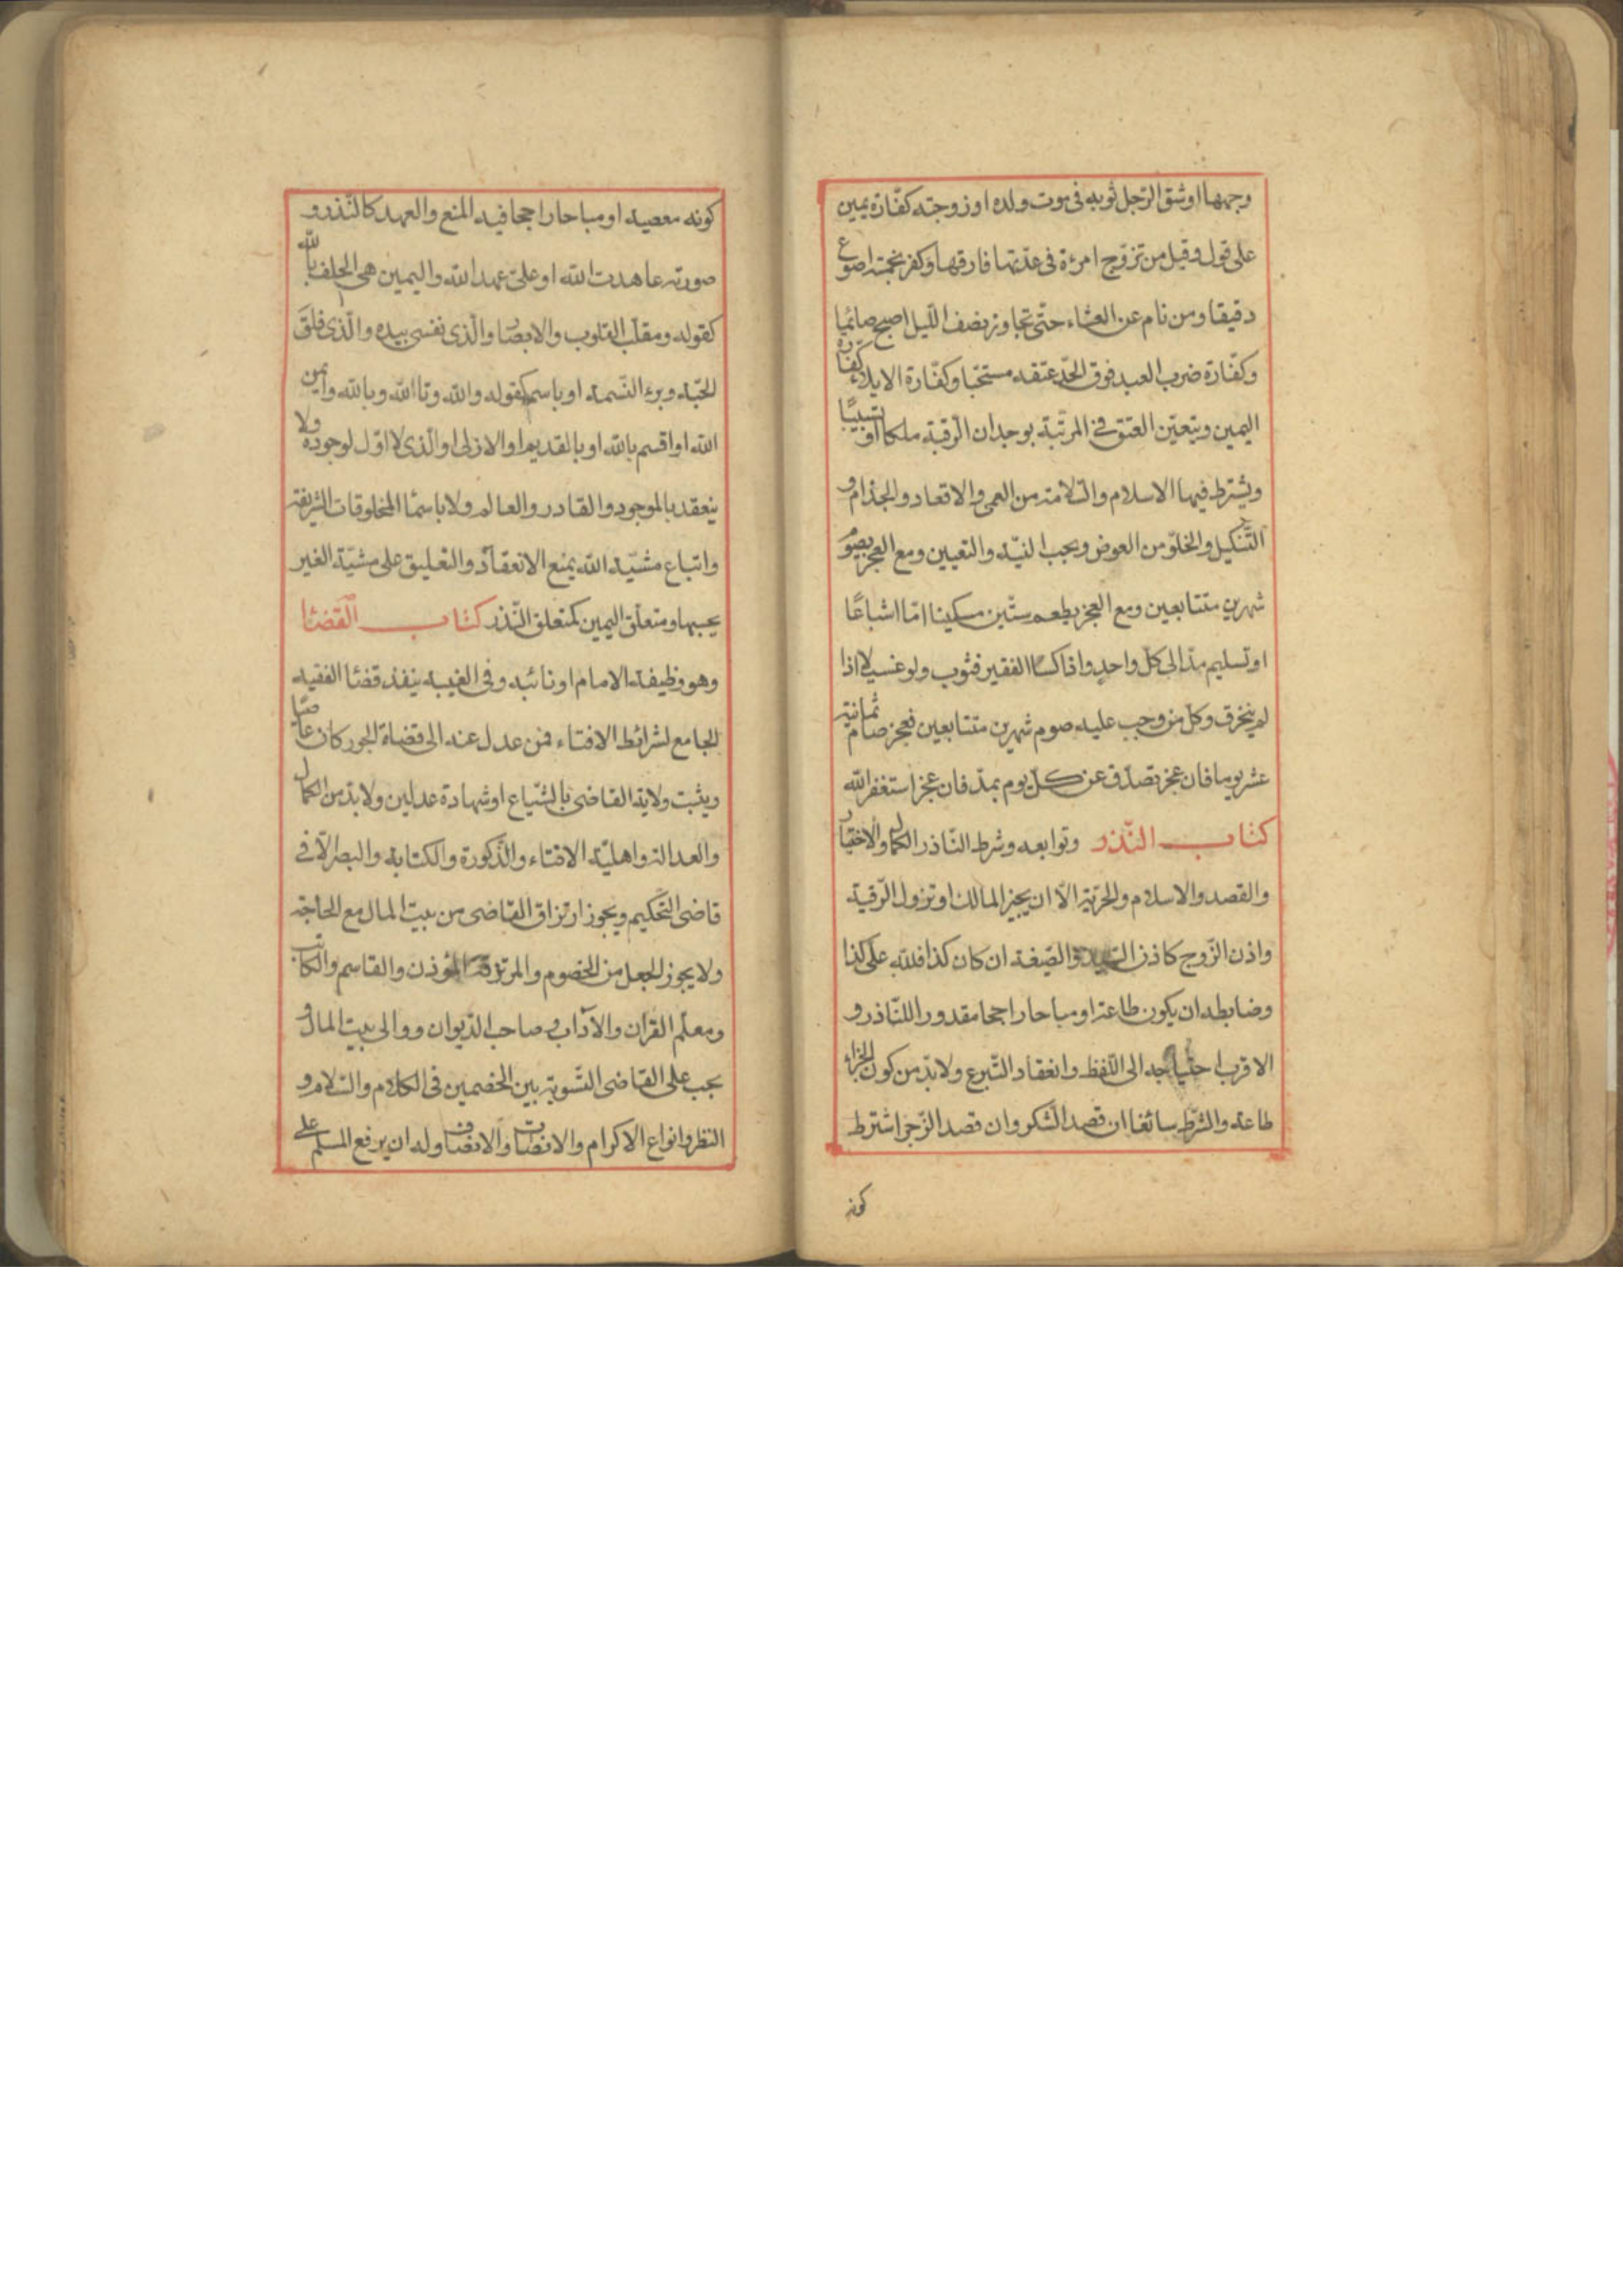 وجهها اوشق الرّجل ثوبه فى موت ولده او زوجته كفّارة يمين
على قول وقيل من تزوّج امرءة فى عدّتها فارقها وكفر بخمسة اصوع
دقيقا ومن نام عن العشاء حتّى تجاوز نصف اللّيل اصبح صائما
وكفّارة ضرب العبد فوق الحدّ عتقه مستحبّا وكفّارة الايلاء كفّارة
اليمين ويتعيّن العتق فى المرتّبة بوجدان الرّقبة ملكا او تسبيبًا
ويشترط فيها الاسلام والسّلامة من العمى والاقعاد والجذام و
التّنكيل والخلوّ من العوض ويجب النيّة والتعيين ومع العجز يصوم
شهرين متتابعين ومع العجز يطعم ستّين مسكينا امّا اشباعًا
او تسليم مدّ الى كلّ واحدٍ واذا كسا الفقير فثوب ولو غسيلا اذا
لم ينخرق وكلّ من وجب عليه صوم شهرين متتابعين فعجز صام ثمانية
عشر يوما فان عجز تصدّق عن كلّ يوم بمدّ فان عجز استغفر الله
كتاب النّذر وتوابعه وشرط النّاذر الكمال والاختيار
والقصد والاسلام والحرّية الّا ان يجيز المالك او تزول الرّقية
واذن الزّوج كاذن السّيد والصّيغة ان كان كذا فللّه علىّ كذا
وضابطه ان يكون طاعة او مباحا راجحا مقدورا للنّاذر و
الاقرب احتياجه الى اللّفظ وانعقاد التّبرع ولا بدّ من كون الجزاء
طاعة والشّرط سائغا ان قصد الشّكر وان قصد الزّجر اشترط
كونه
كونه معصية او مباحا راجحا فيه المنع والعهد كالنّذر و
صورته عاهدت الله او علىّ عهد الله واليمين هى الحلف بالله
كقوله ومقلّب القلوب والابصار والّذى نفسى بيده والّذى فلق
الحبّة وبرء النّسمة او باسمه كقوله والله وتاالله وبالله وايمن
الله او اقسم بالله او بالقديم او الازلى او الّذى لا اوّل لوجوده ولا
ينعقد بالموجود والقادر والعالم ولا باسماء المخلوقات الشريفة
واتباع مشيّة الله يمنع الانعقاد والتعليق على مشيّة الغير
يحبسها ومتعلّق اليمين كمتعلق النّذر كتاب القضاء
وهو وظيفة الامام او نائبه وفى الغيبة ينفذ قضاء الفقيه
الجامع لشرائط الافتاء فمن عدل عنه الى قضاة الجور كان عاصيا
ويثبت ولاية القاضى بالشّياع او شهادة عدلين ولا بدّ من الكمال
والعدالة واهليّة الافتاء والذّكورة والكتابة والبصر الّا فى
قاضى التّحكيم ويجوز ارتزاق القاضى من بيت المال مع الحاجة
ولا يجوز الجعل من الخصوم والمرتزقة المؤذن والقاسم والكاتب
ومعلّم القران والآداب وصاحب الدّيوان ووالى بيت المال و
يجب على القاضى التّسوية بين الخصمين فى الكلام والسّلام و
النظر وانواع الاكرام والانصات والانصاف وله ان يرفع المسلم على